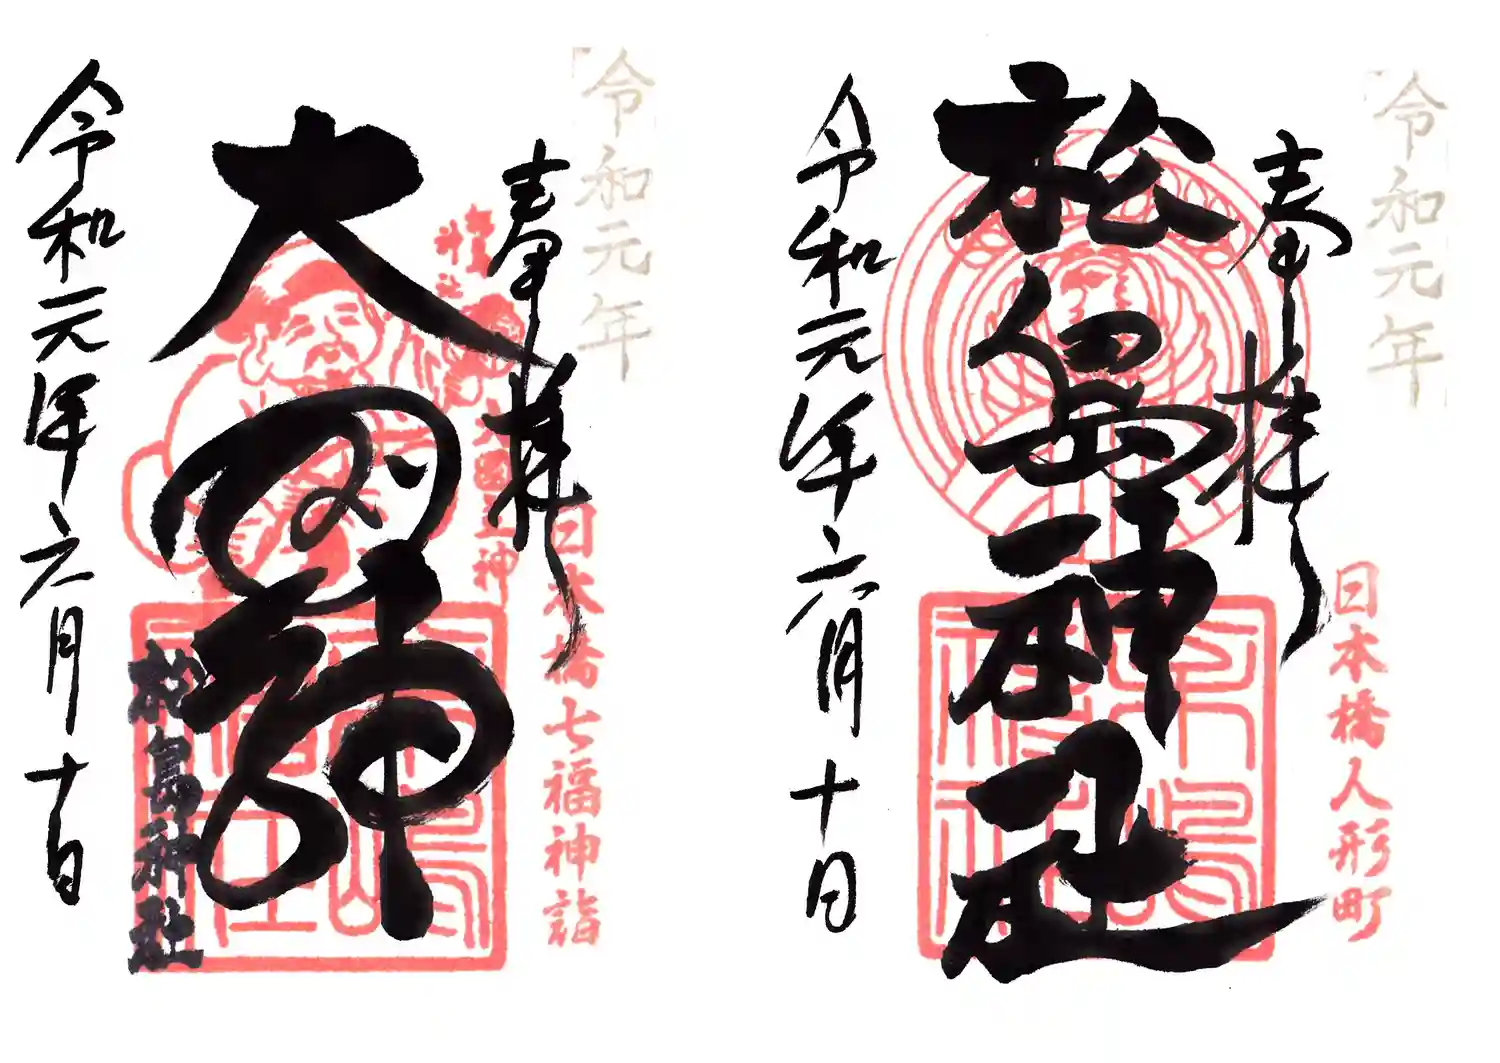 令和元年
奉拝
日本橋人形町
松島神社
令和元年六月十日
令和元年
奉拝
日本橋七福神詣
大國主神
大国神
松島神社
令和元年六月十日